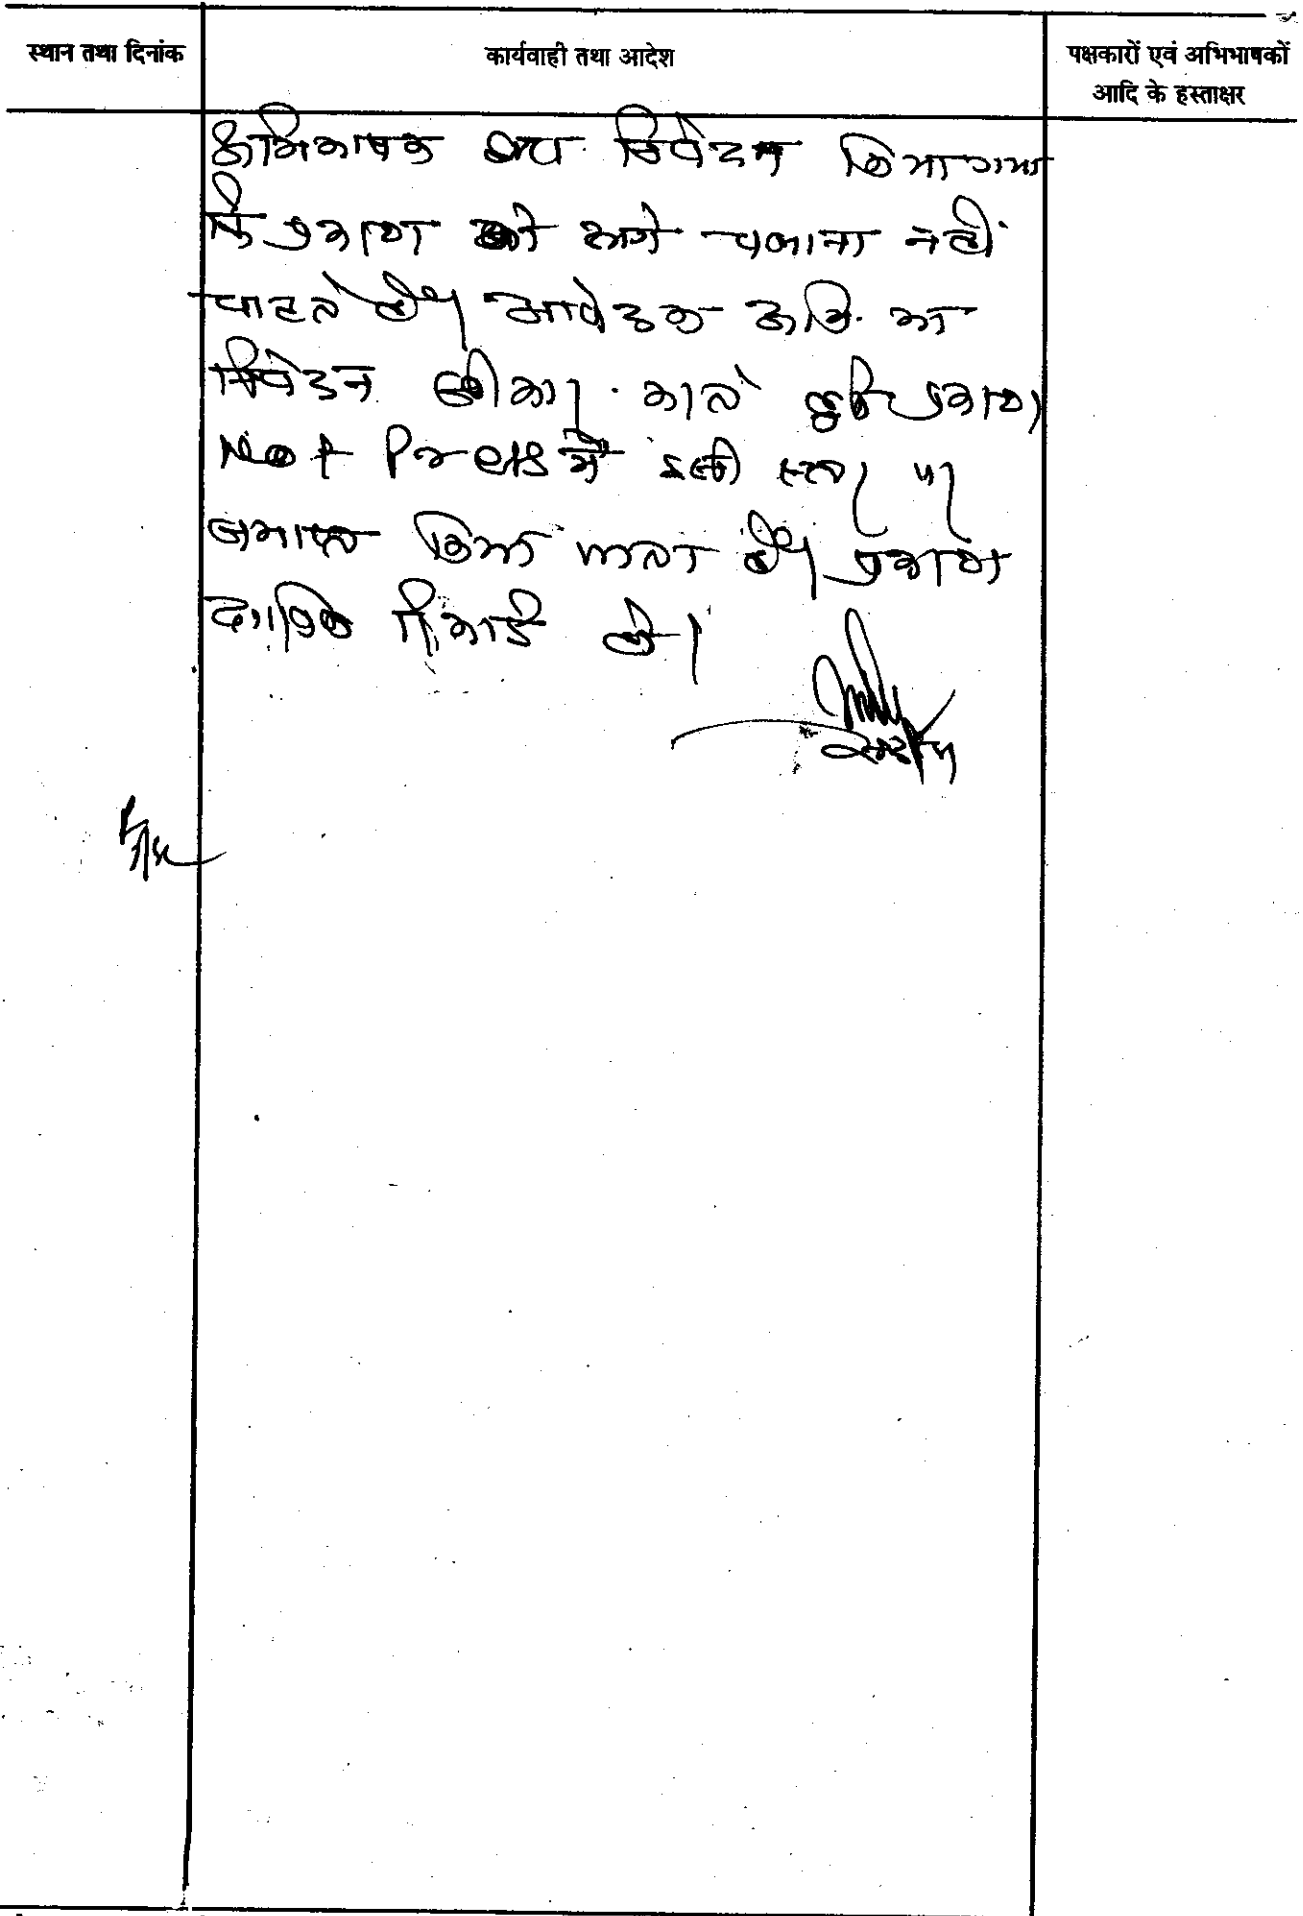 स्थान तथा दिनांक
कार्यवाही तथा आदेश
पक्षकारों एवं अभिभाषकों
आदि के हस्ताक्षर
अभिभाषक द्वारा निवेदन किया गया
कि प्रकरण को आगे चलाना नहीं
चाहते है। आवेदक अभि. का
निवेदन स्वीकार करते हुये प्रकरण
Not Press में इसी स्तर पर
समाप्त किया जाता है। प्रकरण
दाखिल रिकार्ड हो।
सदस्य